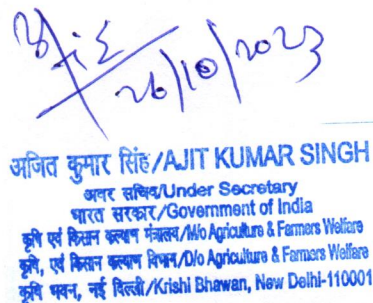 26/10/2023
अजित कुमार सिंह/AJIT KUMAR SINGH
अवर सचिव/Under Secretary
भारत सरकार/Government of India
कृषि एवं किसान कल्याण मंत्रालय/M/o Agriculture & Farmers Welfare
कृषि, एवं किसान कल्याण विभाग/D/o Agriculture & Farmers Welfare
कृषि भवन, नई दिल्ली/Krishi Bhawan, New Delhi-110001